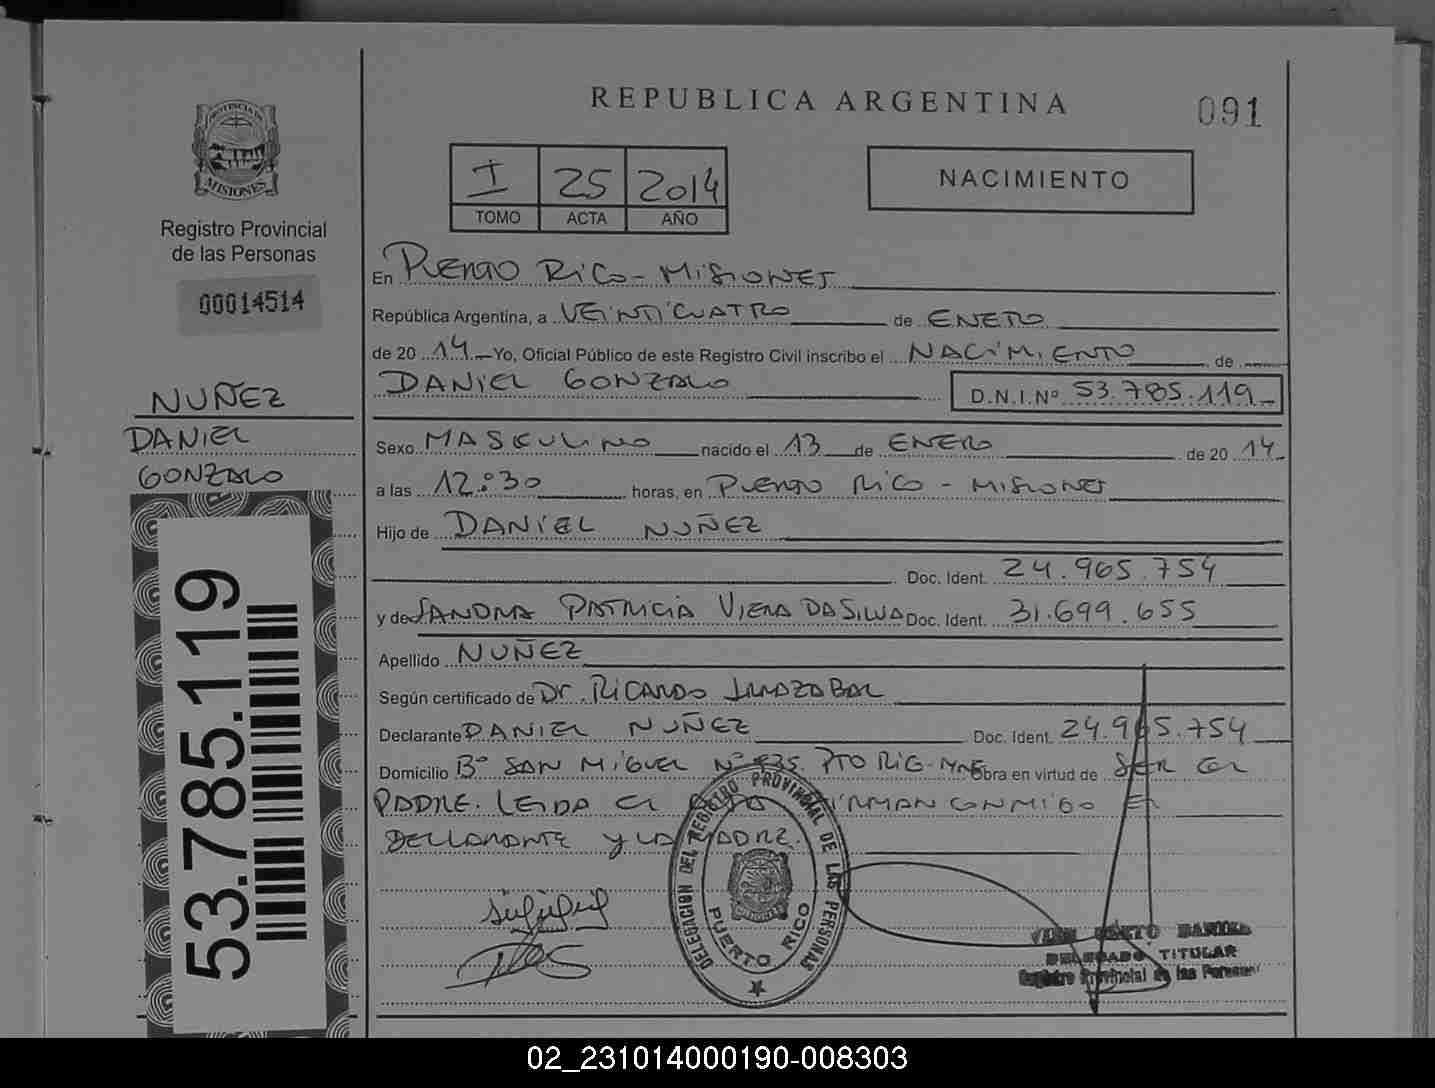 REPUBLICA ARGENTINA
091
PROVINCIA DE MISIONES
Registro Provincial
de las Personas
00014514
I 25 2014
TOMO ACTA AÑO
NACIMIENTO
En PUERTO RICO - MISIONES
República Argentina, a VEINTICUATRO de ENERO
de 2014 Yo, Oficial Público de este Registro Civil inscribo el NACIMIENTO de
DANIEL GONZALO D.N.I.Nº 53.785.119
NUÑEZ
DANIEL
GONZALO
53.785.119
Sexo MASCULINO nacido el 13 de ENERO de 2014
a las 12:30 horas, en PUERTO RICO - MISIONES
Hijo de DANIEL NUÑEZ
Doc. Ident. 24.965.754
y de SANDRA PATRICIA VIERA DA SILVA Doc. Ident. 31.699.655
Apellido NUÑEZ
Según certificado de Dr. RICARDO IRRAZABAL
Declarante DANIEL NUÑEZ Doc. Ident. 24.965.754
Domicilio Bº SAN MIGUEL Nº PTO RICO - MNES Obra en virtud de SER EL
PADRE. LEIDA EL ACTA FIRMAN CONMIGO EL
DECLARANTE Y LA MADRE.
DELEGACION DEL REGISTRO PROVINCIAL DE LAS PERSONAS
PUERTO RICO
DELEGADO TITULAR
Registro Provincial de las Personas
02_231014000190-008303